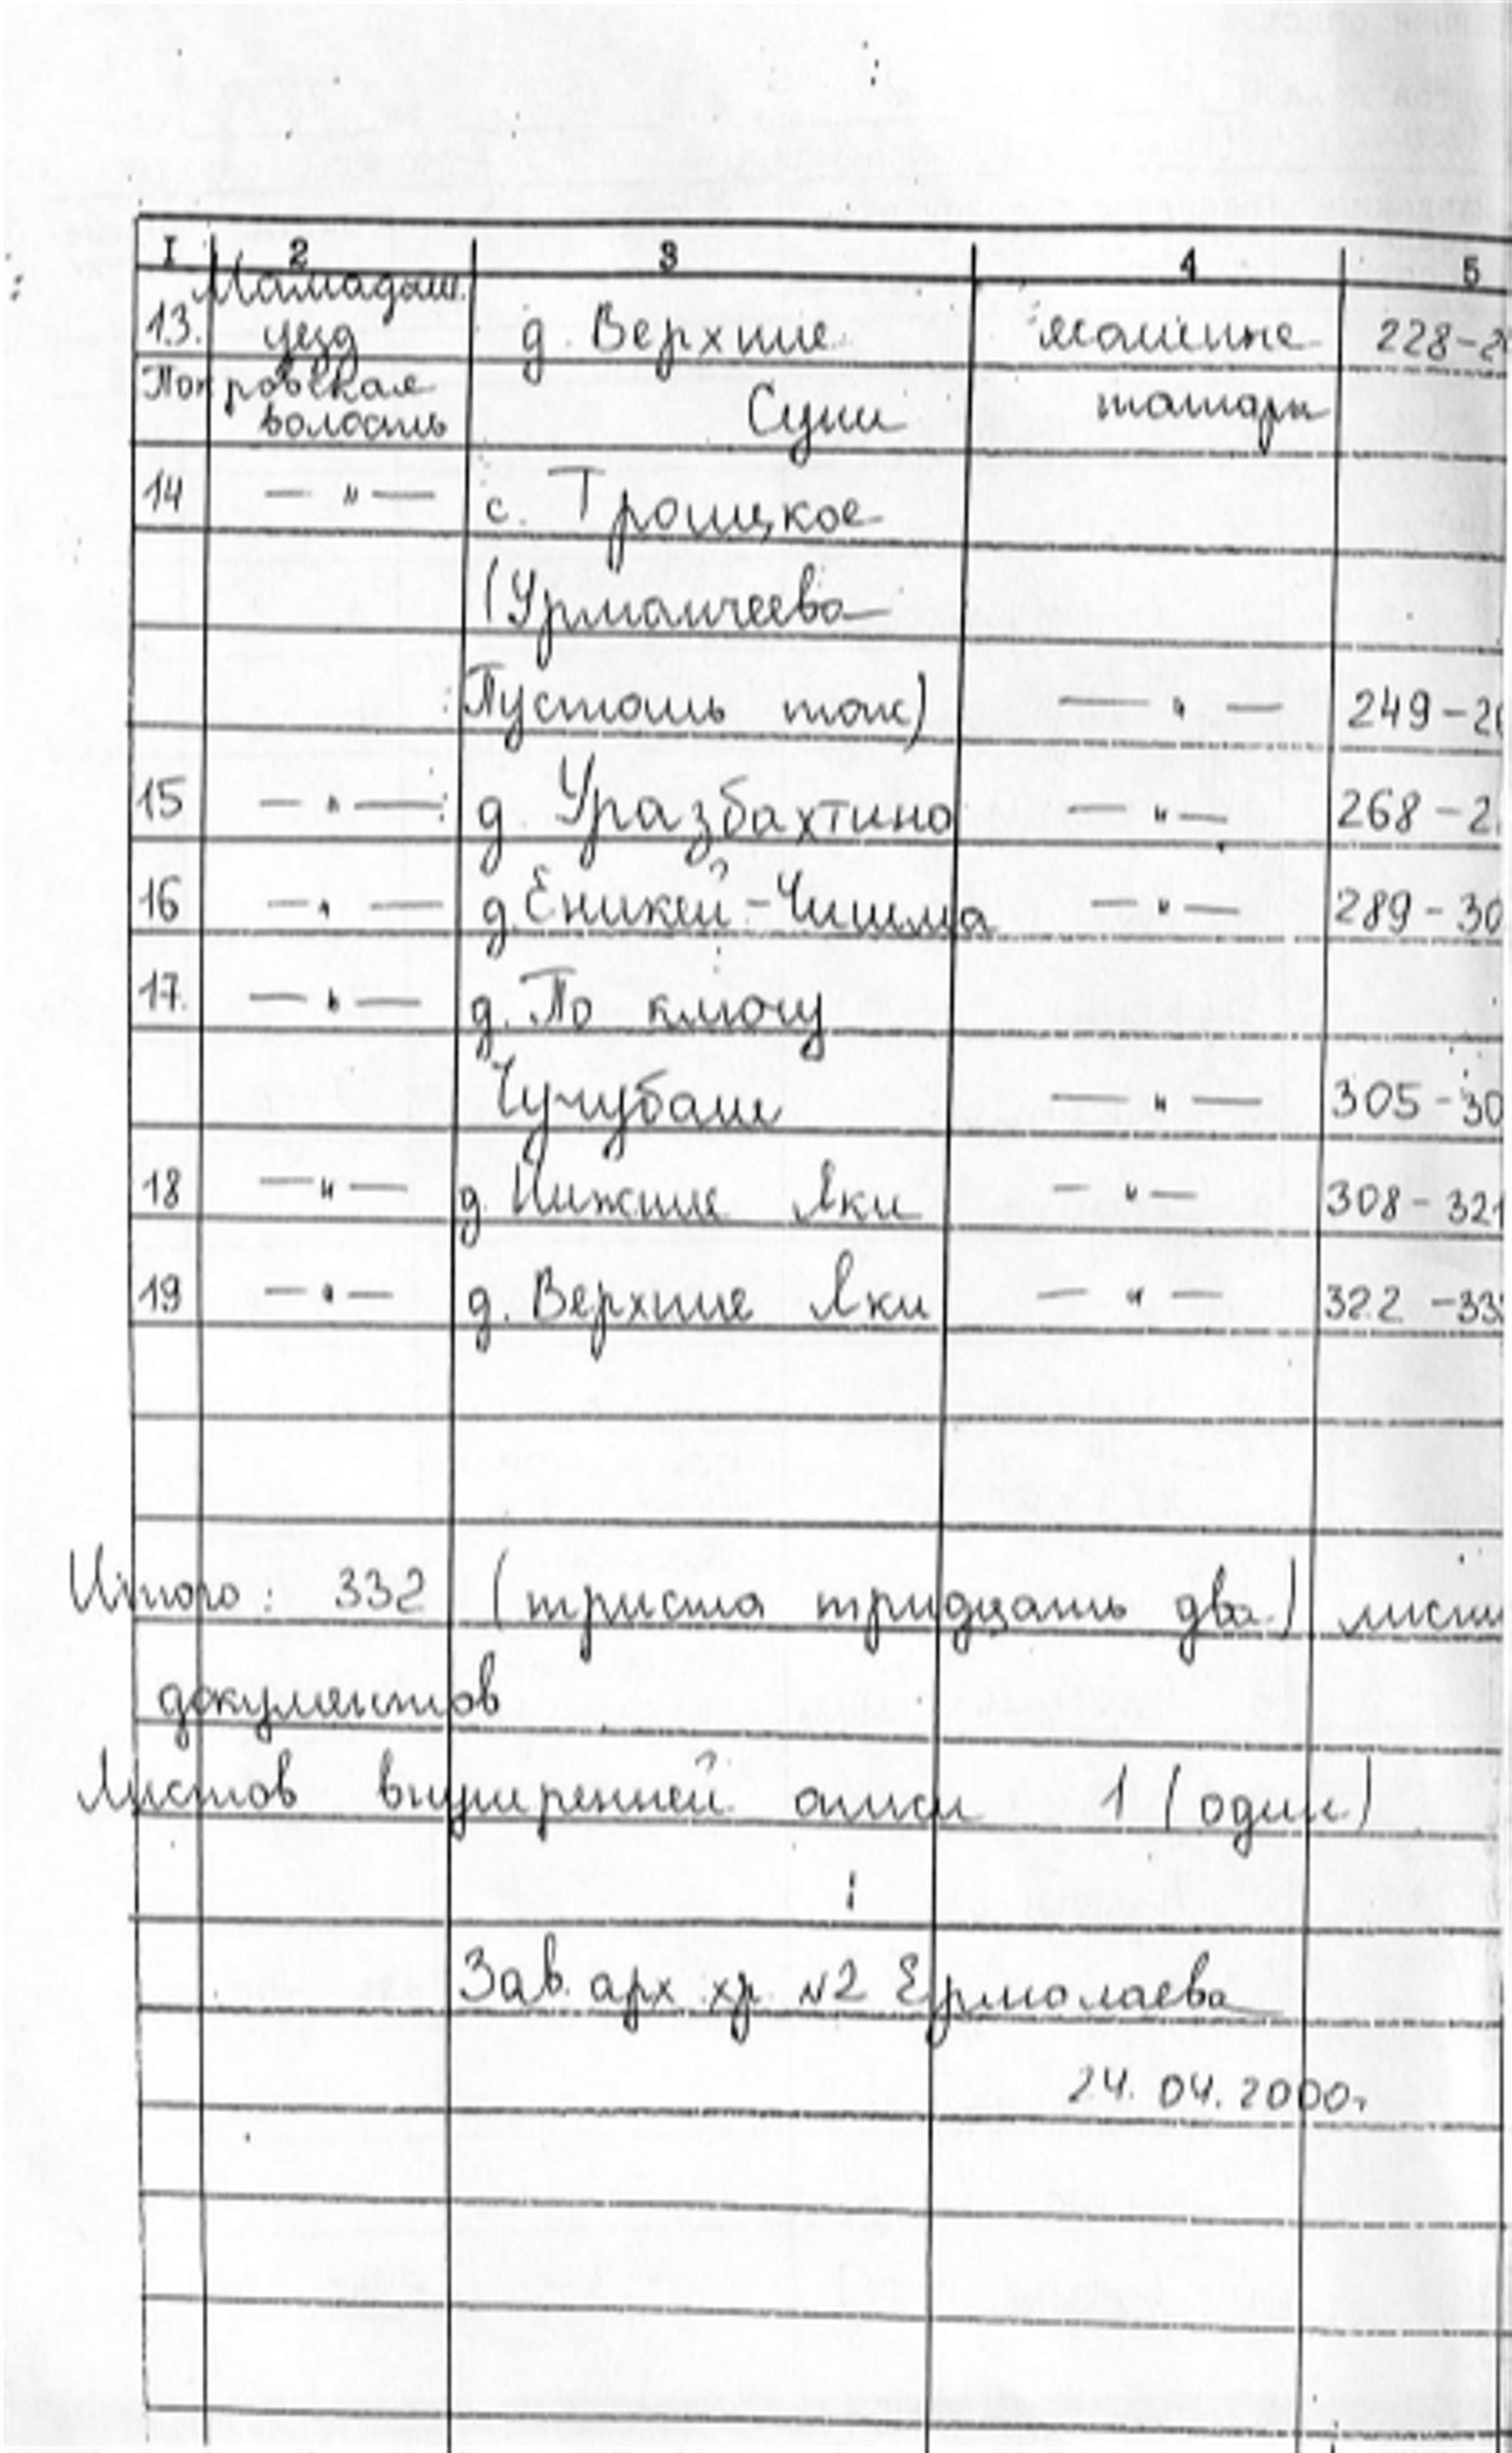 I 2 3 4 5
Мамадыш.
13. уезд д. Верхние ясашные 228-2
Покровская
волость Суни татары
14 — " — с. Троицкое
(Урманчеева
Пустошь тож) — " — 249-2
15 — " — д. Уразбахтино — " — 268-2
16 — " — д. Еникей-Чишма — " — 289-30
17. — " — д. По ключу
Чучубаш — " — 305-30
18 — " — д. Нижние Яки — " — 308-321
19 — " — д. Верхние Яки — " — 322-33
Итого: 332 (триста тридцать два) листа
документов
Листов внутренней описи 1 (один)
Зав. арх. хр. №2 Ермолаева
24.04.2000г